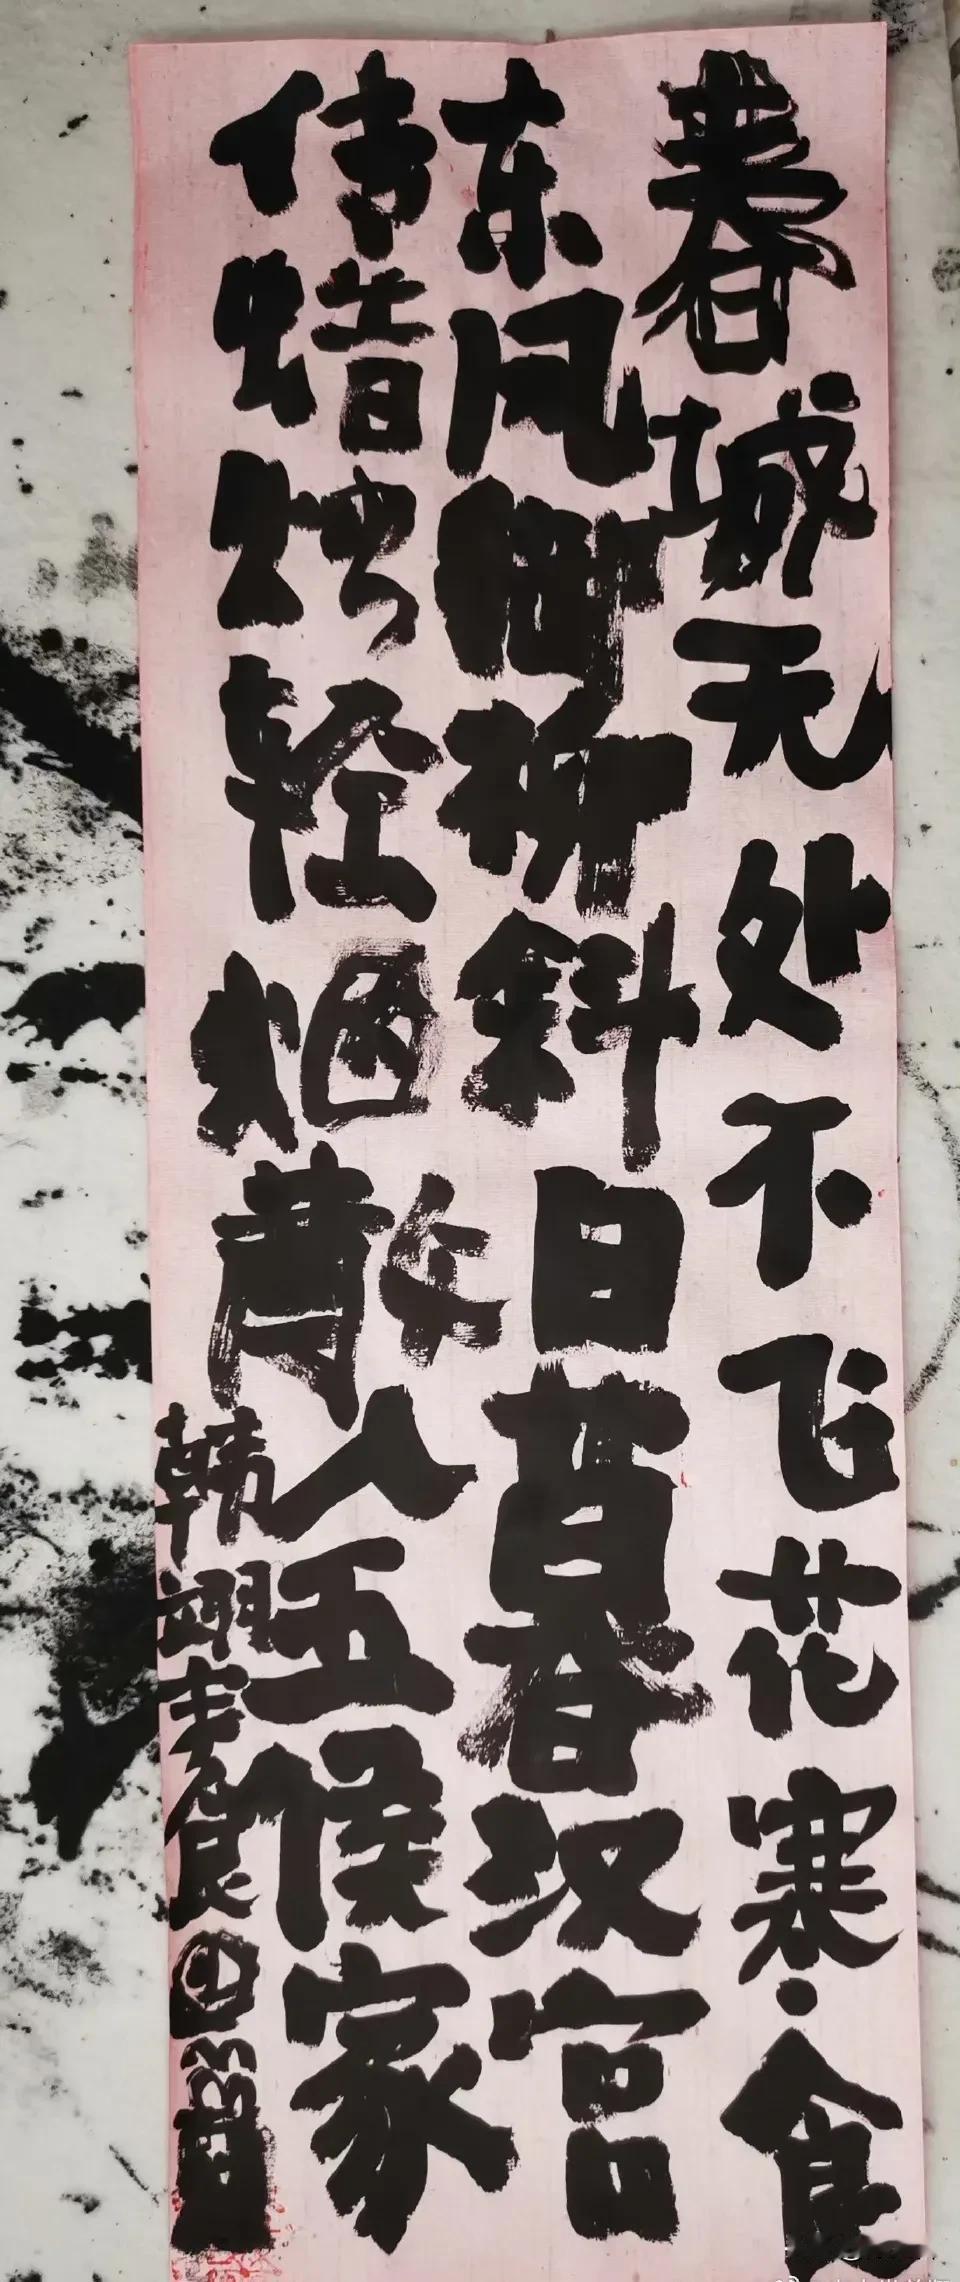 春城无处不飞花寒食
东风御柳斜日暮春汉宫
传蜡烛轻烟散入五侯家
韩翃寒食